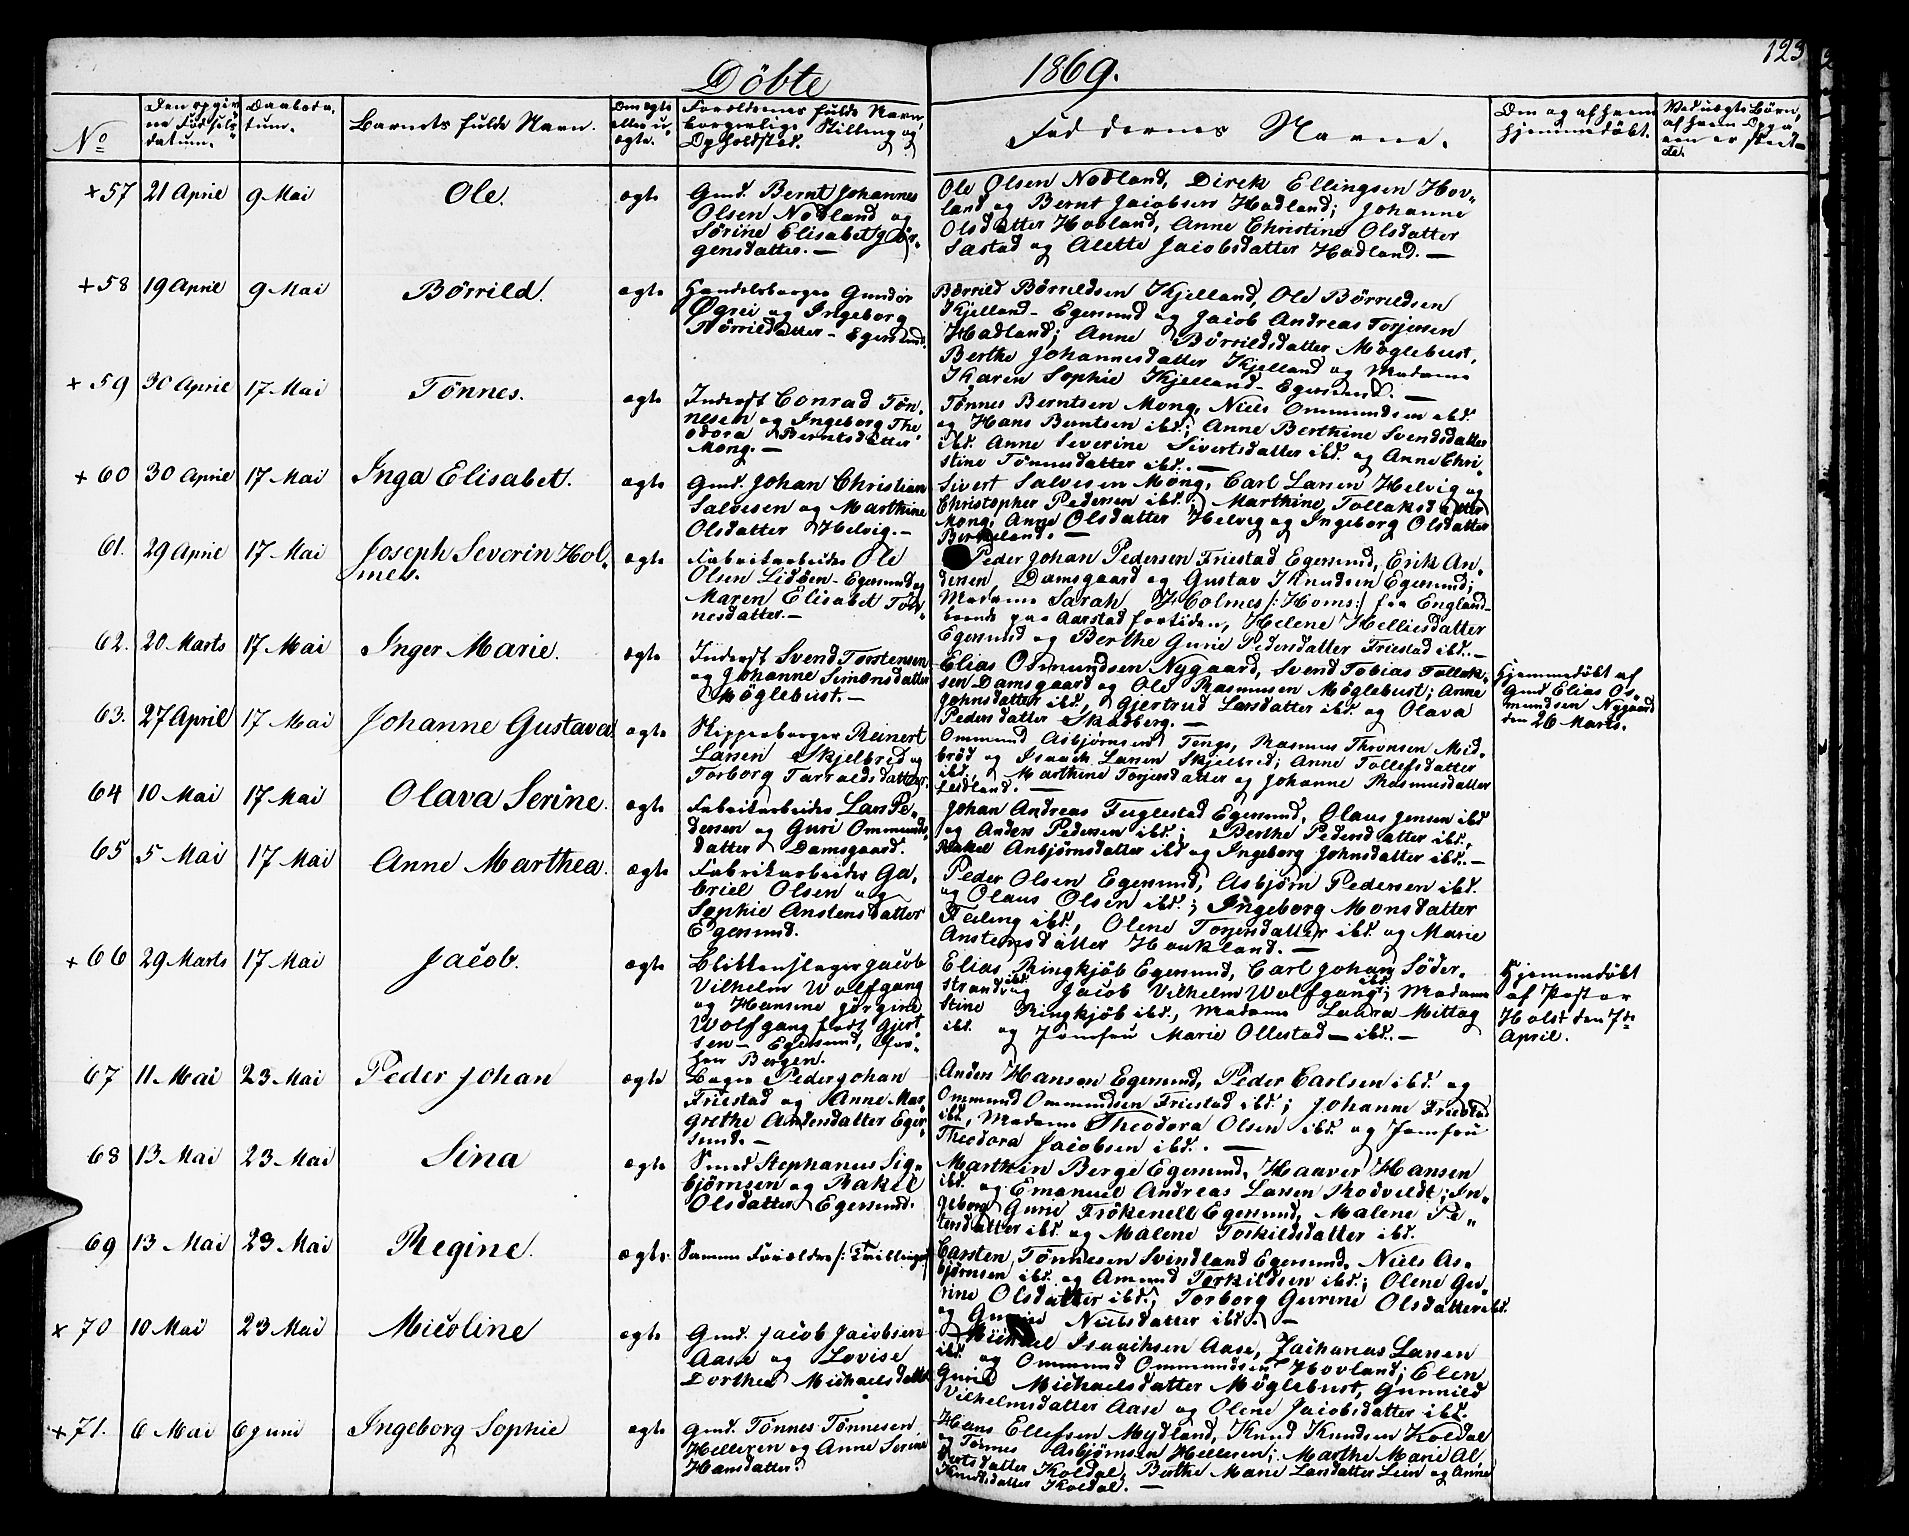 Döbte 1869. 123
No
Den opgivne Födselsdatum.
Daabsdatum.
Barnets fulde Navn.
Om ægte eller uægte.
Forældrenes fulde Navn, borgerlige Stilling og Opholdsted.
Faddernes Navne.
Om og af hvem hjemmedöbt.
Ved uægte Börn, af hvem Opgaven er skeet
+57 21 April 9 Mai Ole. ægte
Gmd. Bernt Johannes
Olsen Nodland og
Sörine Elisabet Jör-
gensdatter. —
Ole Olsen Nodland, Dirck Ellingsen Hov-
land og Bernt Jacobsen Hadland; Johanne
Olsdatter Hovland, Anne Christine Olsdatter
Sæstad og Alette Jacobsdatter Hadland. —
+58 19 April 9 Mai Börrild. ægte
Handelsborger Gunder
Øgrei og Ingeborg
Börrildatter - Egersund.
Börrild Börrildsen Kjelland, Ole Börrildsen
Kjelland - Egersund og Jacob Andreas Torjersen
Hadland; Anne Börrildsdatter Möglebust,
Berthe Johannesdatter Kjelland og Madame
Karen Sophie Kjelland - Egersund. —
+59 30 April 17 Mai Tönnes. ægte
Inderst Conrad Tön-
nesen og Ingeborg The
odora Berntsdatter
Mong. —
Tönnes Berntsen Mong, Niels Ommundsen ibd.
og Hans Berntsen ibd.; Anne Berthine Svendsdatter
ibd. Anne Severine Sivertsdatter ibd. og Anne Chri-
stine Tönnesdatter ibd. —
+60 30 April 17 Mai Inga Elisabet. ægte
Gmd. Johan Christian
Salvesen og Marthine
Olsdatter Helvig. —
Sivert Salvesen Mong, Carl Larsen Helvig og
Christopher Pedersen ibd.; Marthine Tollaksdatter
Mong, Anne Olsdatter Helvig og Ingeborg Olsdatter
Berkeland. —
61. 29 April 17 Mai Joseph Severin Hol-
mes. ægte
Fabrikarbeider Ole
Olsen Lidöen - Egersund og
Maren Elisabet Tön-
nesdatter. —
Peder Johan Pedersen Friestad Egersund, Erik An-
dersen Damsgaard og Gustav Knudsen Egersund;
Madame Sarah Holmes /: Homs :/ fra England -
boende paa Aarstad fortiden, Helene Helliesdatter
Egersund og Berthe Gurie Pedersdatter Friestad ibd. —
62. 20 Marts 17 Mai Inger Marie. ægte
Inderst Svend Torstensen
og Johanne Simonsdatter
Möglebust. —
Elias Osmundsen Nygaard, Svend Tobias Tollak-
sen Damsgaard og Ole Rasmusen Möglebust; Anne
Johnsdatter ibd., Gjertrud Larsdatter ibd. og Olava
Pedersdatter Skadberg. —
Hjemmedöbt af
Gmd Elias Os-
mundsen Nygaard
den 26 Marts.
63. 27 April 17 Mai Johanne Gustava ægte
Skipperborger Reinert
Larsen Skjelbred og
Torborg Tarraldsdatter.
Ommund Asbjörnsen Tengs, Rasmus Thronsen Mid-
bröd og Isaach Larsen Skjelbred; Anne Tollefsdatter
ibd., Marthine Torjersdatter og Johanne Rasmusdatter
Leidland. —
64 10 Mai 17 Mai Olava Serine. ægte
Fabrikarbeider Lars Pe-
dersen og Guri Ommunds-
datter Damsgaard.
Johan Andreas Fuglestad Egersund, Olaus Jensen ibd
og Anders Pedersen ibd.; Berthe Pedersdatter ibd.,
Rakel Anbjörnsdatter ibd og Ingeborg Johnsdatter ibd. —
65 5 Mai 17 Mai Anne Marthea. ægte
Fabrikarbeider Ga-
briel Olsen og
Sophie Anstensdatter
Egersund.
Peder Olsen Egersund, Asbjörn Pedersen ibd.
og Olaus Olsen ibd.; Ingeborg Monsdatter
Feiling ibd., Olene Torjersdatter ibd. og Marie
Anstensdatter Haukland. —
+66 29 Marts 17 Mai Jacob. ægte
Blikkenslager Jacob
Vilhelm Wolfgang
og Hansine Jörgine
Wolfgang födt Gjert-
sen - Egersund, för-
her Bergen.
Elias Ringkjöb Egersund, Carl Johan Söder-
strand ibd. og Jacob Vilhelm Wolfgang ibd.; Madame
Stine Ringkjöb ibd., Madame Laura Mittag
ibd. og Jomfru Marie Ollestad - ibd. —
Hjemmedöbt
af Pastor
Holst den 7de
April.
67 11 Mai 23 Mai Peder Johan ægte
Bager Peder Johan
Friestad og Anne Mar-
grethe Andersdatter Eger-
sund. —
Anders Hansen Egersund, Peder Carlsen ibd. og
Ommund Ommundsen Friestad ibd.; Johanne Friestad
ibd., Madame Theodora Olsen ibd. og Jomfru
Theodora Jacobsen ibd. —
68 13 Mai 23 Mai Sina ægte
Smed Stephanus Sig-
björnsen og Rakel
Olsdatter Egersund.
Marthin Berge Egersund, Haaver Hansen
ibd. og Emanuel Andreas Larsen Rodveldt; In-
geborg Gurie Frökenell Egersund, Malene Pe-
tersdatter ibd. og Malene Torkildsdatter ibd.
69 13 Mai 23 Mai Regine. ægte.
Samme Forældre /: Tvillinger
Carsten Tönnesen Svindland Egersund, Niels As-
björnsen ibd. og Amund Terkildsen ibd.; Olene Gu-
rine Olsdatter ibd., Torborg Gurine Olsdatter ibd.
og Gurine Nielsdatter ibd. —
x 70 10 Mai 23 Mai Micoline ægte
Gmd. Jacob Jacobsen
Aase og Lovise
Dorthea Michaelsdatt.
Michael Isaachsen Aase, Zacharias Larsen
ibd. og Ommund Ommundsen Hovland; Elen
Gurid Michaelsdatter Möglebust, Gunnild
Vilhelmsdatter Aase og Olene Jacobsdatter ibd.
+71. 6 Mai 6 Juni Ingeborg Sophie ægte
Gmd. Tönnes Tönnesen
Helleren og Anne Serine
Hansdatter.
Hans Ellefsen Mydland, Knud Knudsen Koldal
og Tönnes Asbjörnsen Helleren; Marthe Marie Al-
bertsdatter Koldal, Berthe Marie Larsdatter Lein og Anne
Knudsdatter Koldal. —